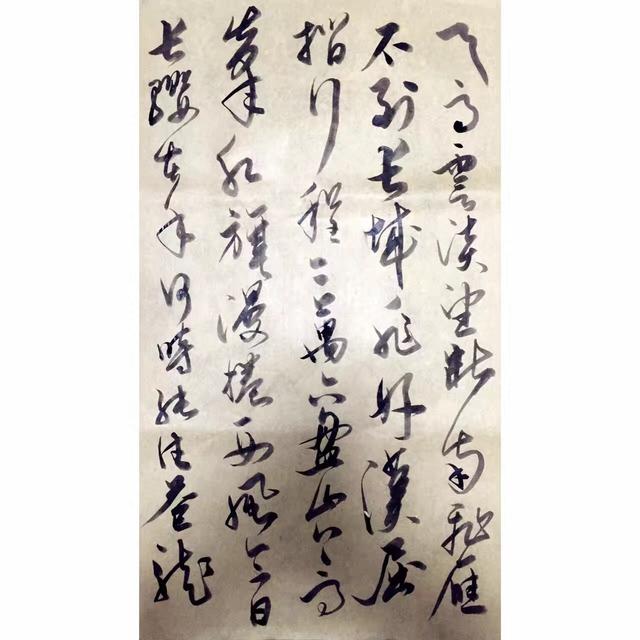 天高雲淡望断南飛雁
不到长城非好漢屈
指行程二萬六盘山上高
峯红旗漫捲西風今日
长纓在手何時缚住苍龙